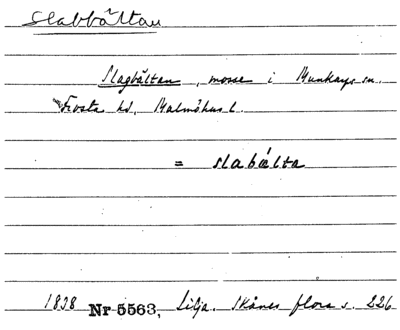 Slabbältan
Slagbältan, mosse i Munkarps sn.
Frosta hd, Malmöhus l.
= slabälta
1838 Nr 5563, Lilja. Skånes flora s. 226